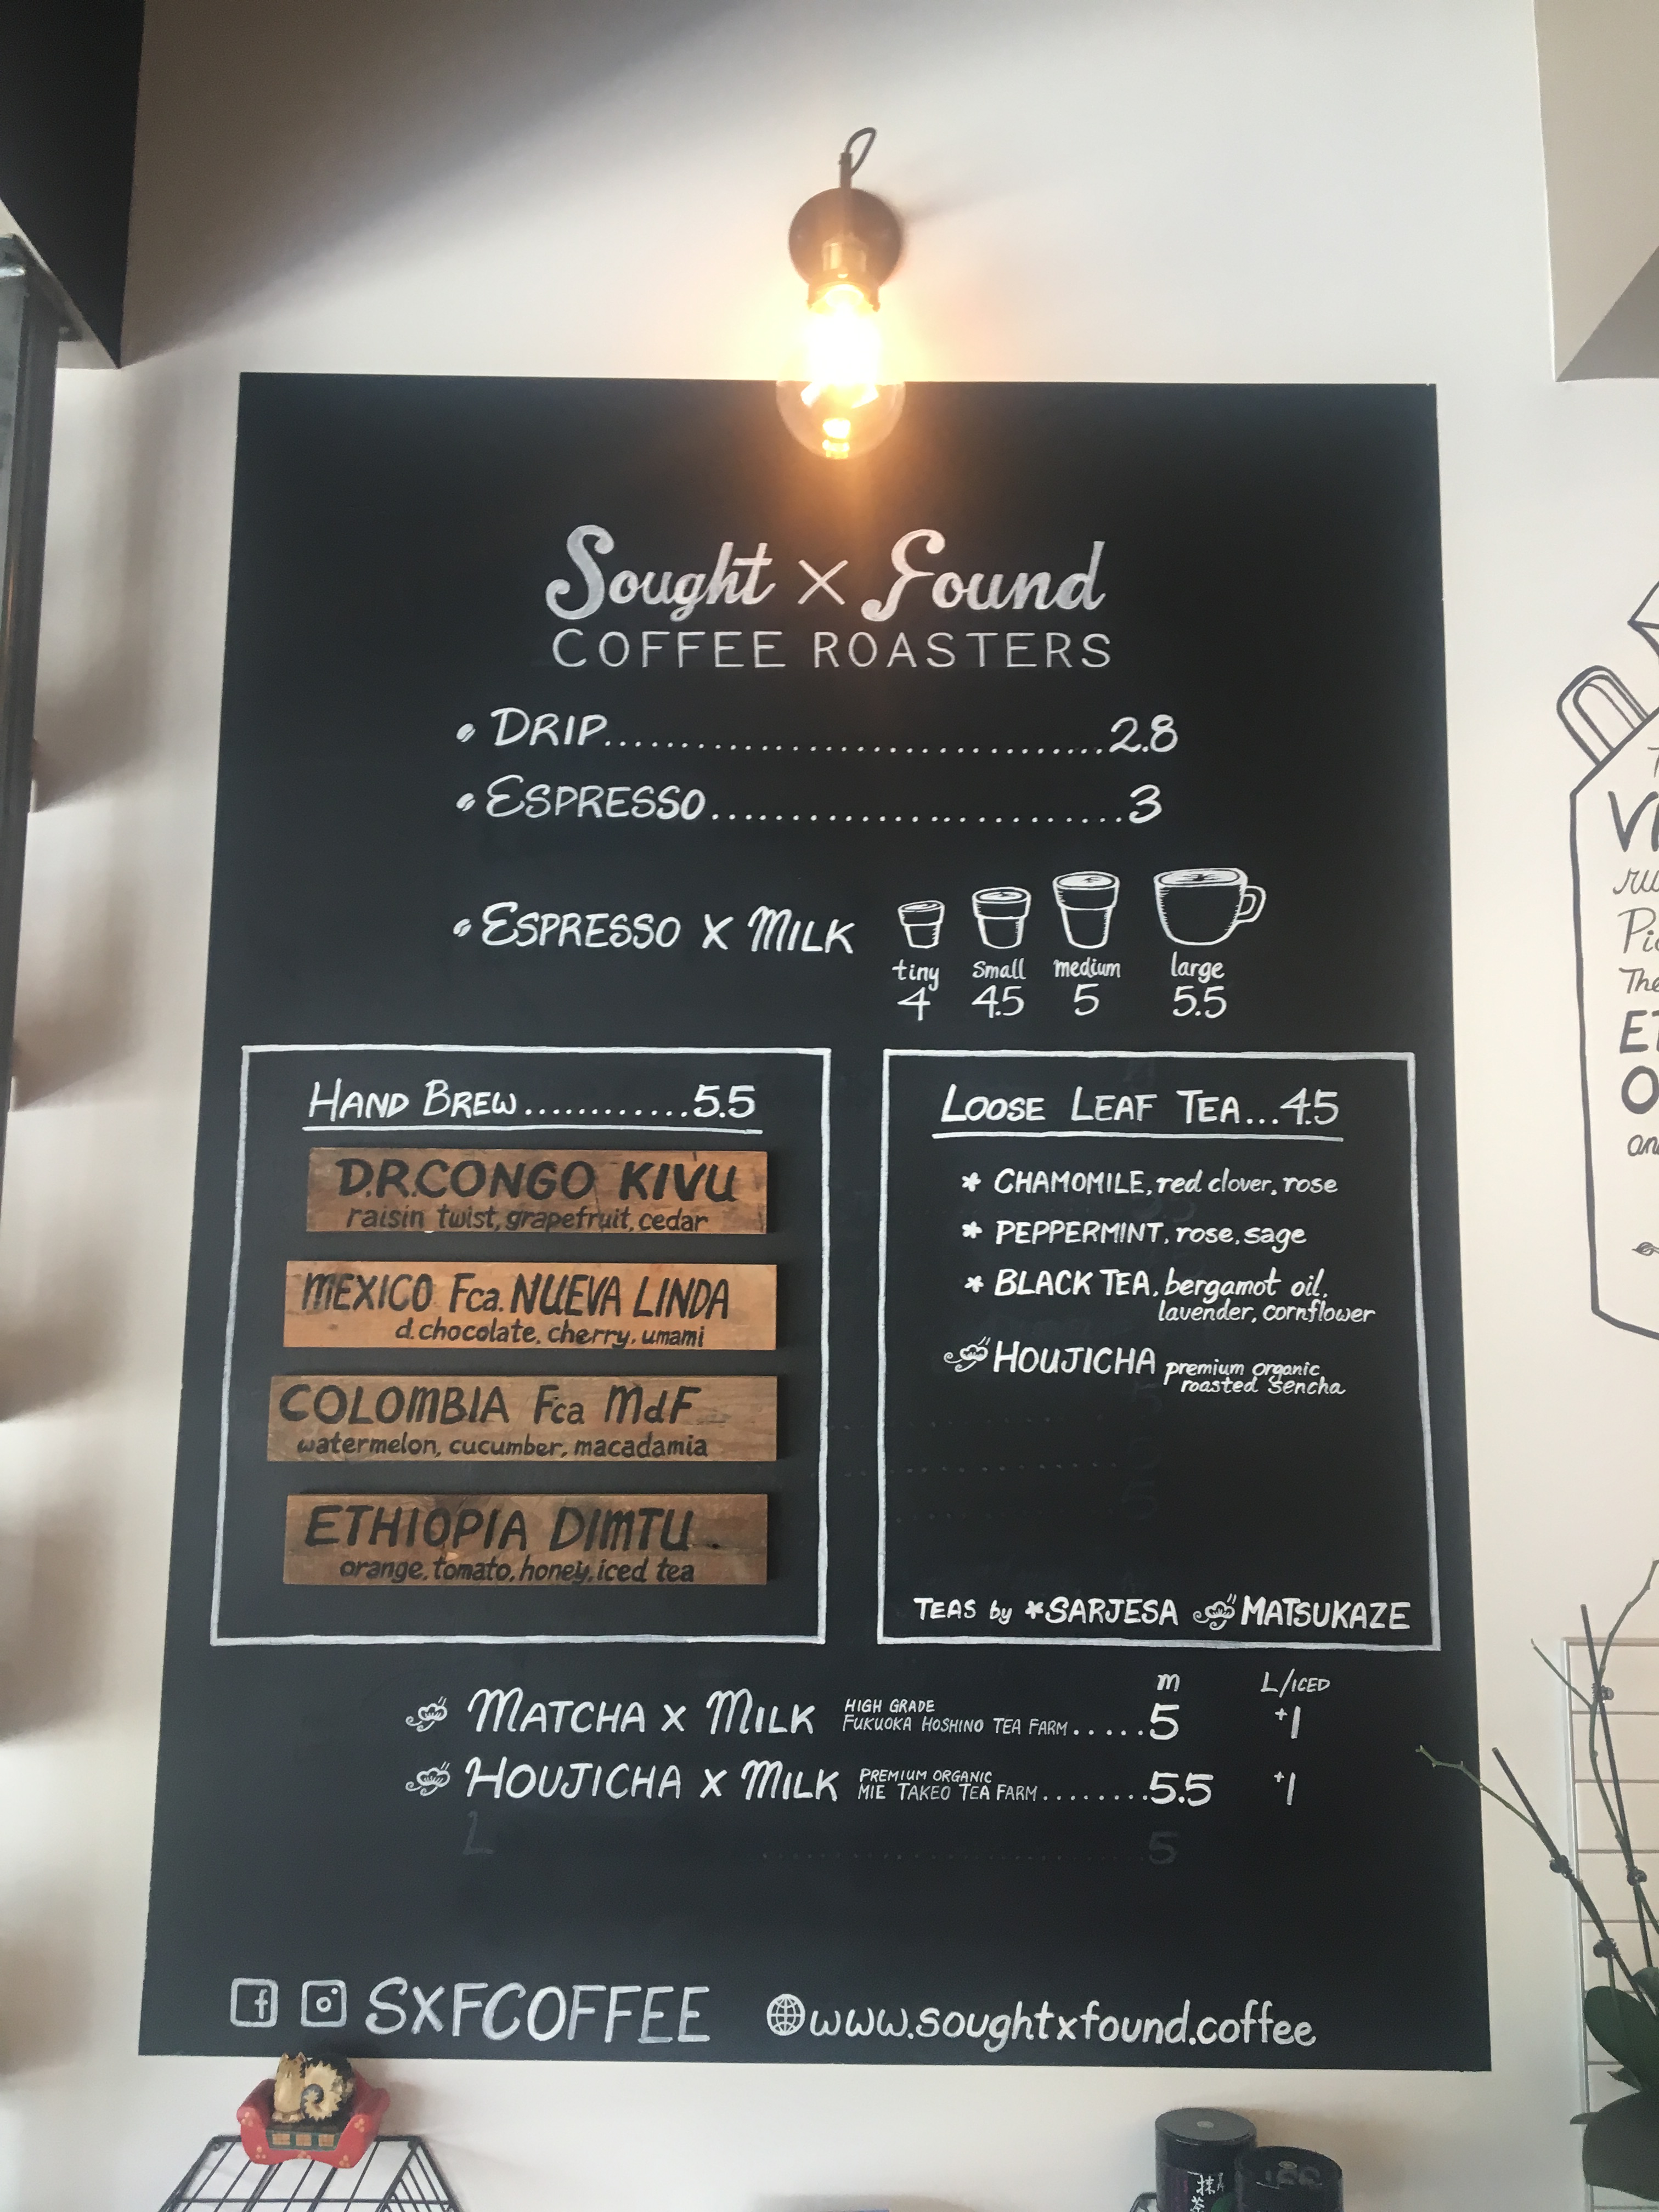 Sought × Found
COFFEE ROASTERS
DRIP.................................2.8
ESPRESSO...........................3
ESPRESSO X MILK
tiny small medium large
4 4.5 5 5.5
HAND BREW............5.5
D.R.CONGO KIVU
raisin, twist, grapefruit, cedar
MEXICO Fca. NUEVA LINDA
d.chocolate, cherry, umami
COLOMBIA Fca MdF
watermelon, cucumber, macadamia
ETHIOPIA DIMTU
orange, tomato, honey, iced tea
LOOSE LEAF TEA...4.5
* CHAMOMILE, red clover, rose
* PEPPERMINT, rose, sage
* BLACK TEA, bergamot oil,
lavender, cornflower
HOUJICHA premium organic
roasted sencha
TEAS by *SARJESA MATSUKAZE
m L/ICED
MATCHA X MILK HIGH GRADE
FUKUOKA HOSHINO TEA FARM.....5 +1
HOUJICHA X MILK PREMIUM ORGANIC
MIE TAKEO TEA FARM........5.5 +1
L 5
SXFCOFFEE www.soughtxfound.coffee
The
and
抹
茶